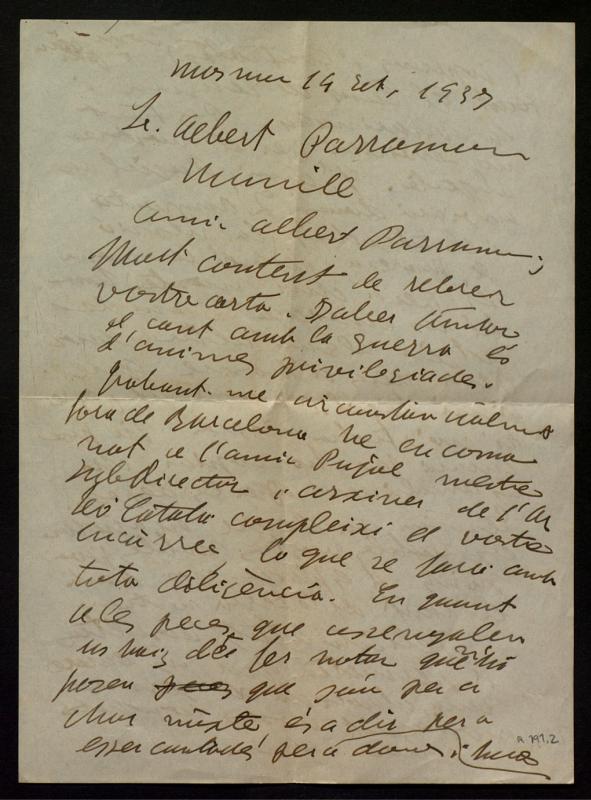 19 set, 1937
Sr. Albert Parramon
Murill
Amic Albert Parramon;
Molt content de rebrer
vostre carta. Saber
el cant amb la guerra és
d'animes privilegiades.
Trobant-me circunstancialment
fora de Barcelona he encoma
nat a l'amic Pujol mestre
subdirector i arxiver de l'Or
feó Català compleixi el vostre
encàrrec lo que se farà amb
tota diligència. En quant
a les peces que assenyaleu
us haig de fer notar que
posen que són per a
chor mixte, és a dir per a
esser cantades per a dones i homes
R.797.2